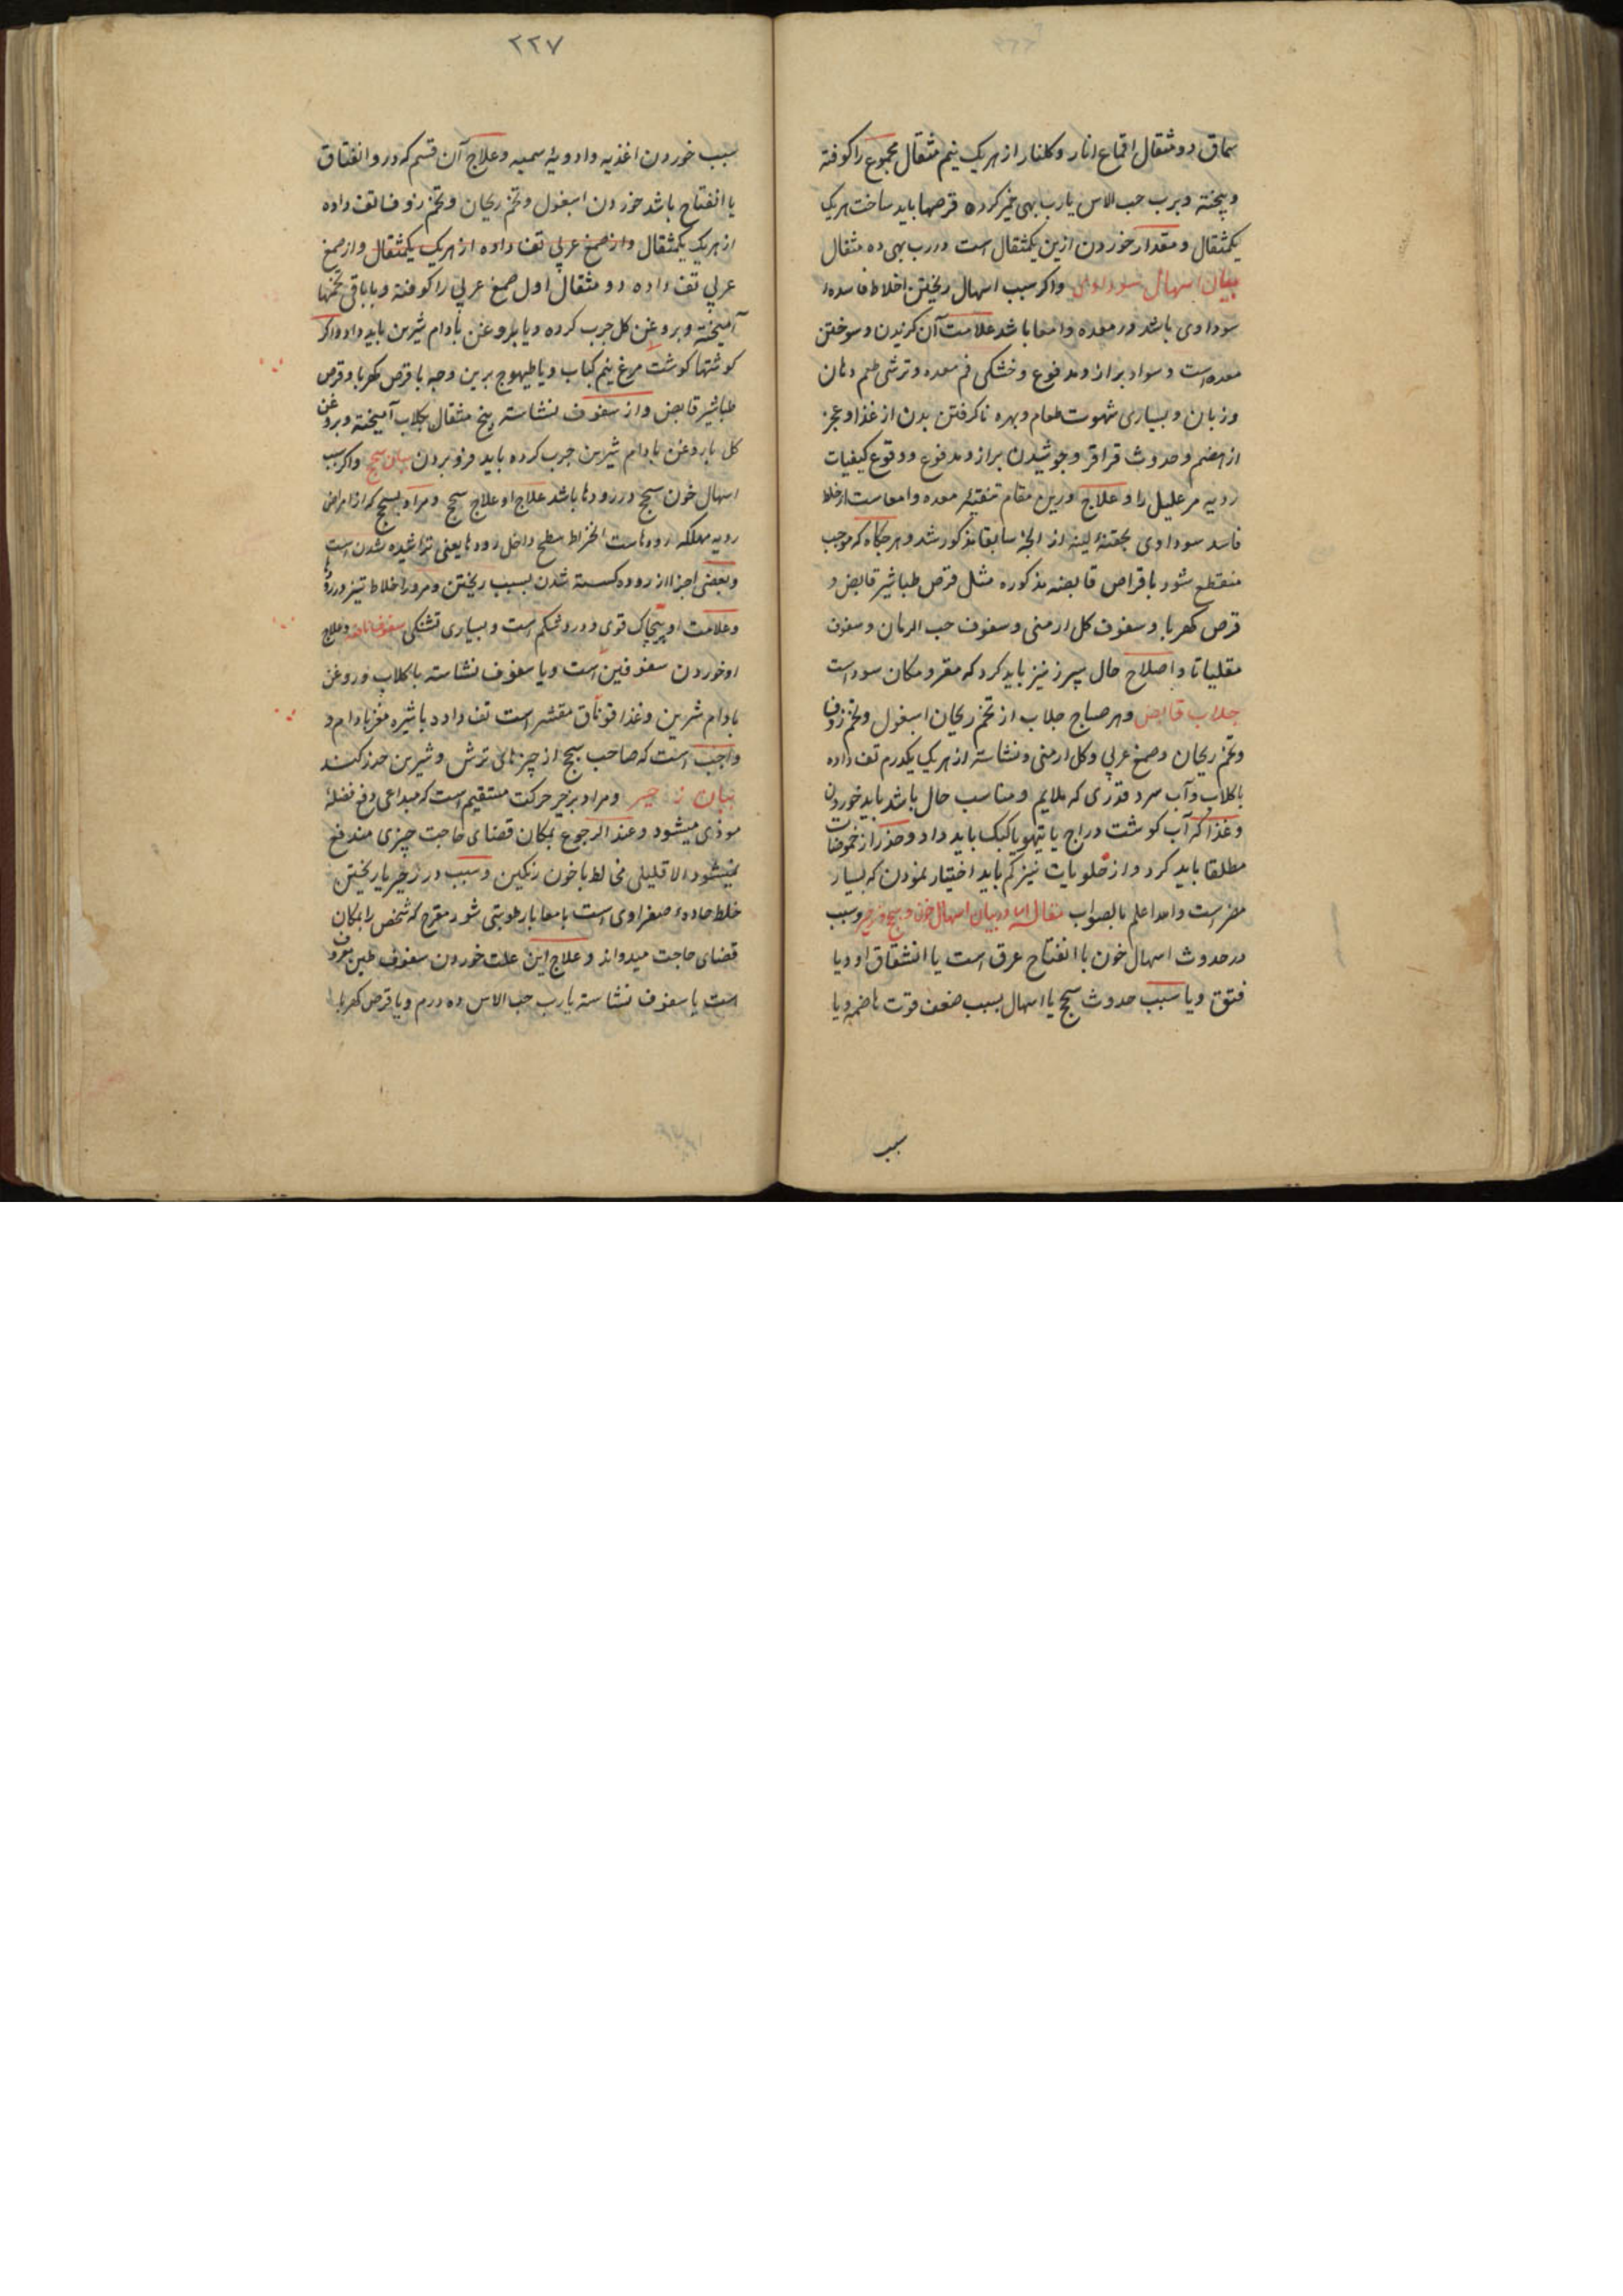 سماق دو مثقال اقماع انار و کلنار از هر یک نیم مثقال مجموع را کوفته
و پیخته و برب حب الاس یا رب بهی خمیر کرده قرصها باید ساخت هر یک
یکمثقال و مقدار خوردن ازین یکمثقال است و رب بهی ده مثقال
بیان اسهال سوداوی واکر سبب اسهال ریختن اخلاط فاسده
سوداوی باشد در معده و امعا باشد علامت آن کزیدن و سوختن
معده است و سواد براز و مدفوع و خشکی فم معده و ترشی طعم دهان
و زبان و بسیاری شهوت طعام و بهره ناکرفتن بدن از غذا و عجز
از هضم و حدوث قراقر و جوشیدن براز و مدفوع و وقوع کیفیات
ردیه مر علیل را و علاج درین مقام تنقیه معده و امعاست از خلط
فاسد سوداوی بحقنه لینه از انچه سابقا مذکور شد و هر جکاه که موجب
منقطع شود باقراص قابضه مذکوره مثل قرص طباشیر قابض و
قرص کهربا و سفوف کل ارمنی و سفوف حب الرمان و سفوف
مقلیاثا و اصلاح حال سپرز نیز باید کرد که مقر و مکان سوداست
جلاب قابض و هر صباح جلاب از تخم ریحان اسبغول و تخم زوفا
و تخم ریحان و صمغ عربی و کل ارمنی و نشاسته از هر یک یکدرم تف داده
با کلاب و آب سرد قدری که ملایم و مناسب حال باشد باید خوردن
و غذا که آب کوشت دراج یا تیهو یا کبک باید داد و حذر از حموضات
مطلقا باید کرد و از حلویات نیز کم باید اختیار نمودن که بسیار
مضر است والله اعلم بالصواب مقاله در بیان اسهال خون و سحج و زحیر و سبب
در حدوث اسهال خون یا انفتاح عرق است یا انشقاق او و یا
فتق و یا سبب حدوث سحج یا اسهال بسبب ضعف قوت هاضمه و یا
سبب
۲۲۷
سبب خوردن اغذیه و ادویه سمیه و علاج آن قسم که در و انفتاق
یا انفتاح باشد خوردن اسبغول و تخم ریحان و تخم زوفا تف داده
از هر یک یکمثقال و از صمغ عربی تف داده از هر یک یکمثقال و از صمغ
عربی تف داده دو مثقال اول صمغ عربی را کوفته و با باقی تخمها
آمیخته و بروغن کل جرب کرده و یا بروغن بادام شیرین باید داد واکر
کوشتها کوشت مرغ نیم کباب و یا طیهوج برین وجه با قرص کهربا و قرص
طباشیر قابض و از سفوف نشاسته پنج مثقال بکلاب آمیخته و بروغن
کل یا روغن بادام شیرین جرب کرده باید فرو بردن بیان سحج واکر سبب
اسهال خون سحج در رودها باشد علاج او علاج سحج و مراد بسحج که از امراض
ردیه مهلکه رودهاست انخراط سطح داخل رودها یعنی تراشیده شدن است
و بعضی اجزا از روده کسسته شدن بسبب ریختن و مرور اخلاط تیز در رودها
و علامت او پیچاک قوی و درد شکم است و بسیاری تشنکی و علاج
او خوردن سفوفین است و یا سفوف نشاسته با کلاب و روغن
بادام شیرین و غذا مقشر است تف داده با شیره مغز بادام و
واجب است که صاحب سحج از چیزهای ترش و شیرین حذر کند
بیان زحیر و مراد بزحیر حرکت مستقیم است که مبداعی دفع فضله
موذی میشود و عند الرجوع بمکان قضای حاجت چیزی مندفع
نمیشود الا قلیلی مخالط با خون رنکین و سبب در زحیر یا ریختن
خلط حاده صفراوی است بامعا یا رطوبتی شور مقرح که شخص را بمکان
قضای حاجت میدواند و علاج این علت خوردن سفوف طین معروف
است یا سفوف نشاسته یا رب حب الاس ده درم و یا قرص کهربا